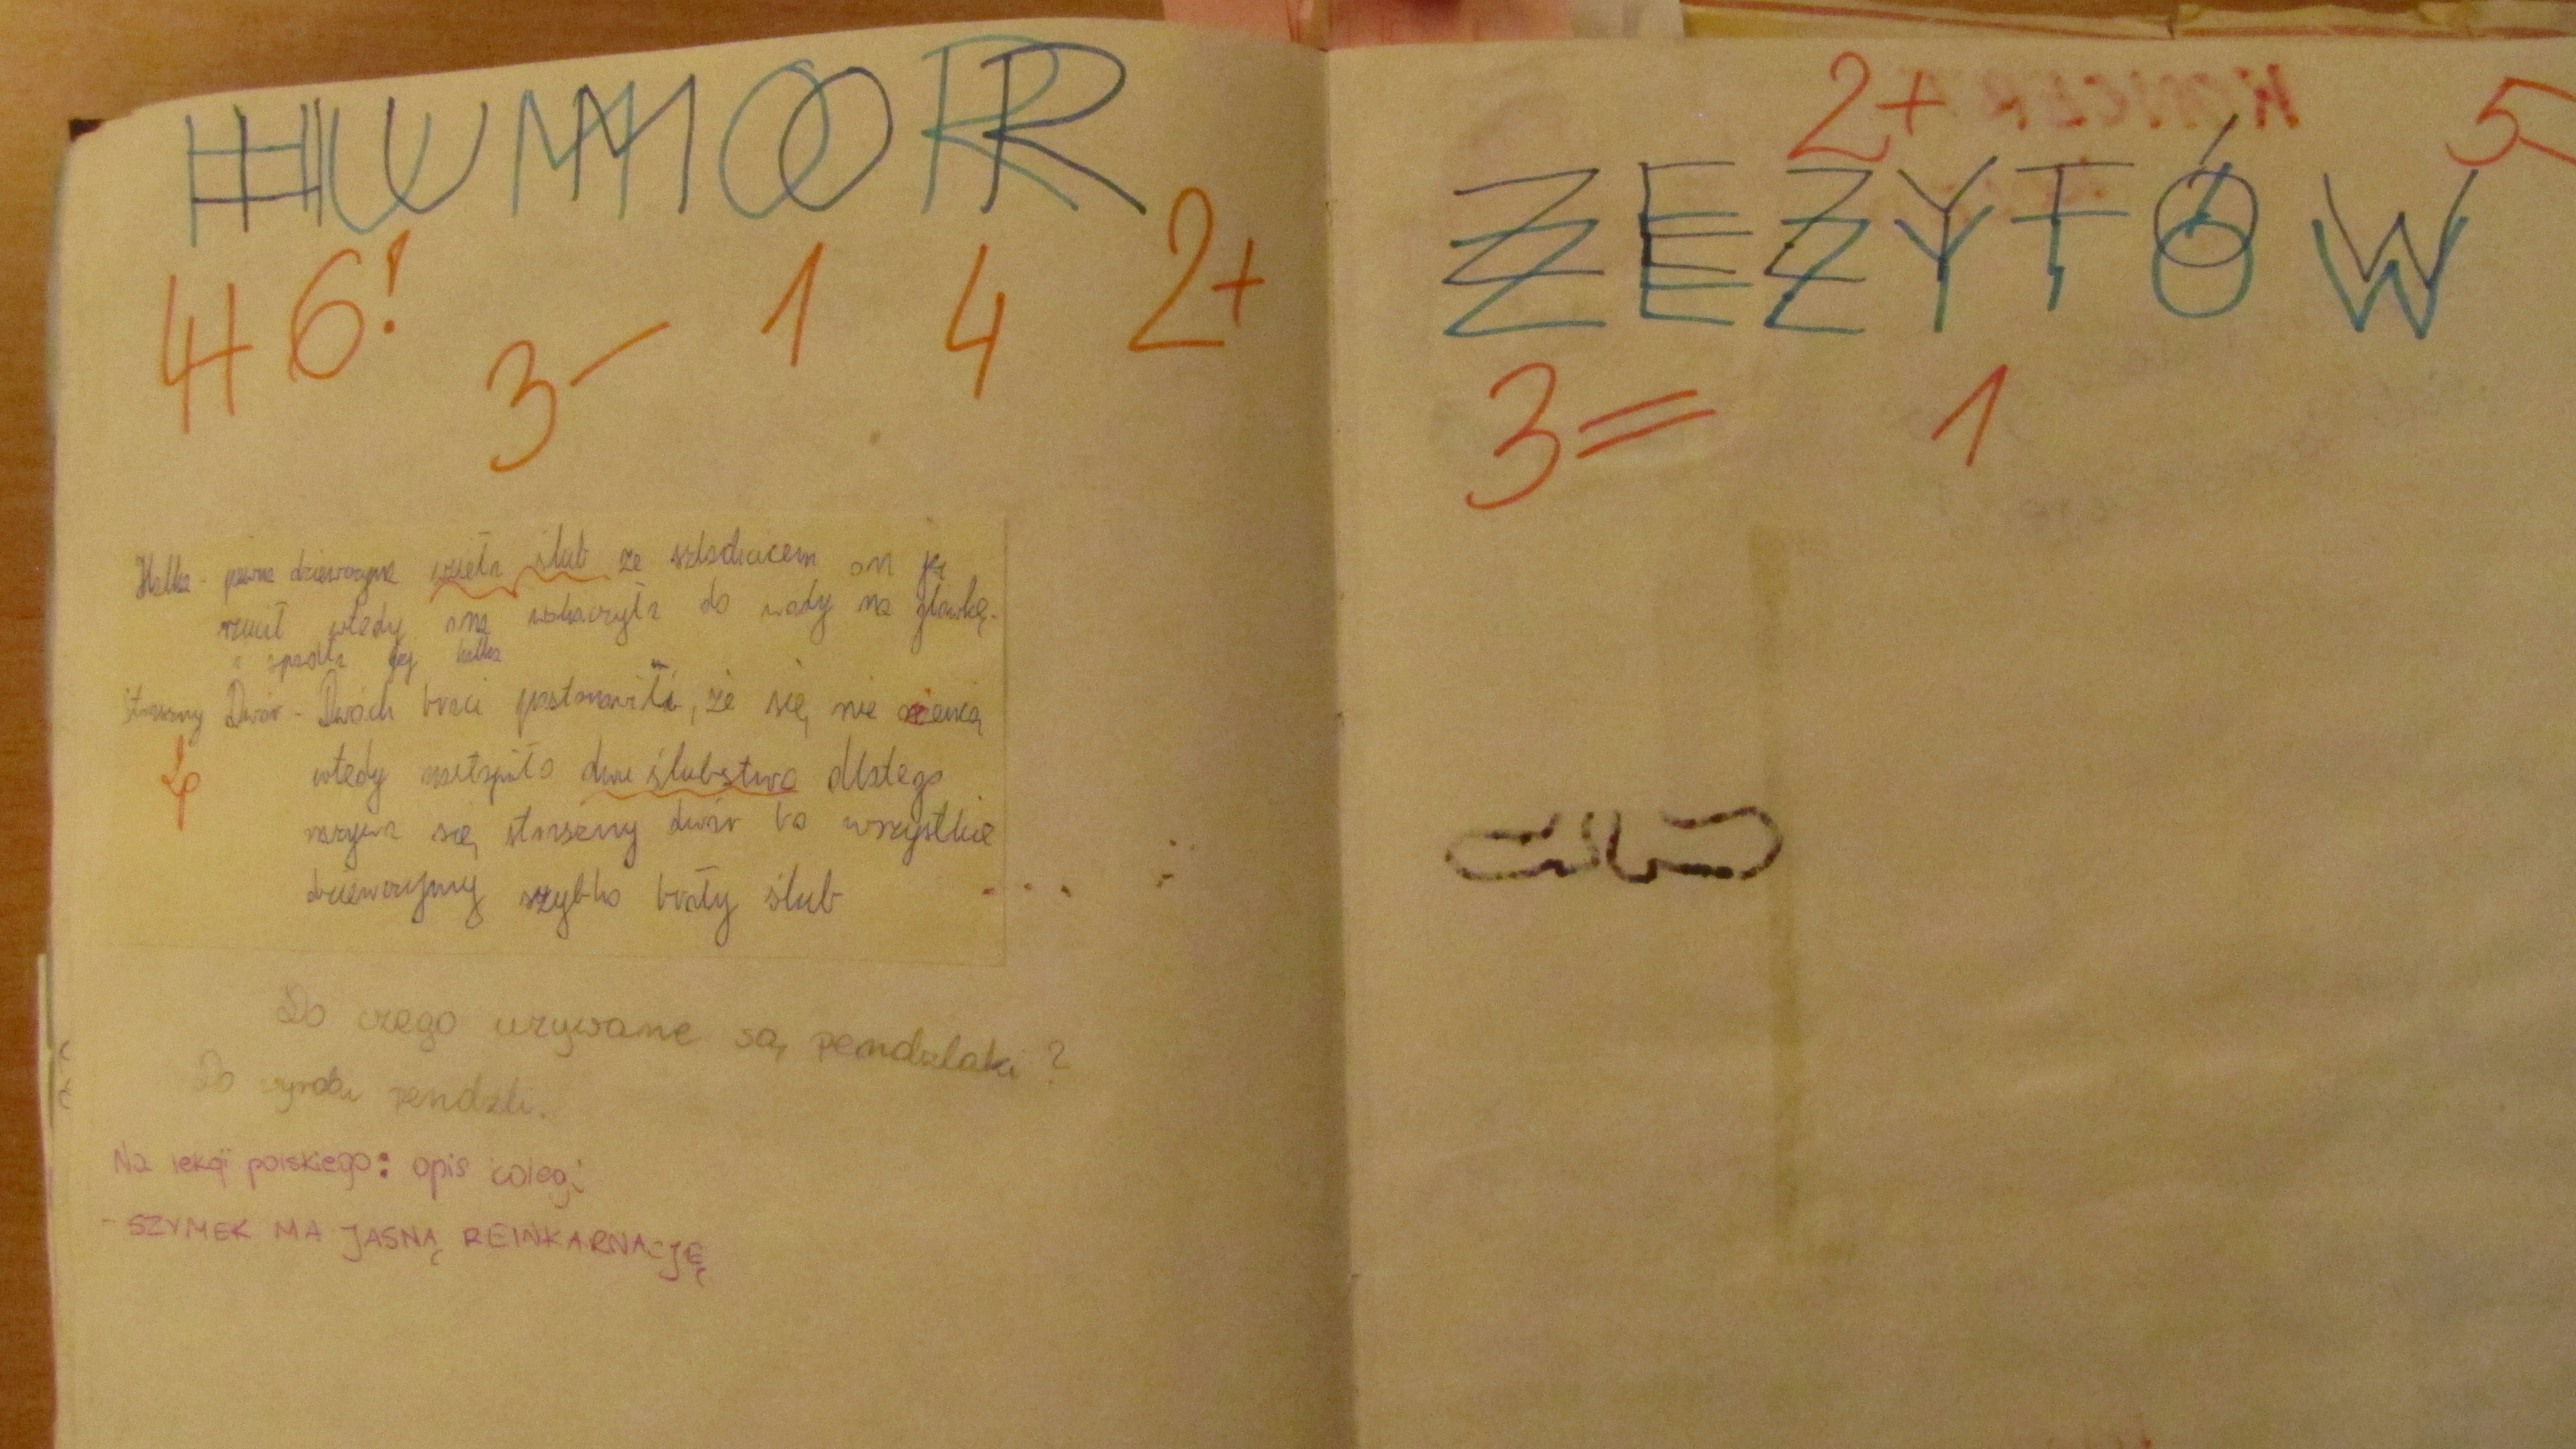 HUMOR
4+ 6! 3- 1 4 2+
Halka - pewna dziewczyna wzieła ślub ze szlachcicem on ją
rzucił wtedy ona wskoczyła do wody na główkę.
i spadła jej halka
Straszny Dwór - Dwóch braci postanowiło, że się nie ożenią
wtedy nastąpiło dwu ślubstwo dlatego
nazywa się straszny dwór bo wszystkie
dziewczyny szybko brały ślub
Do czego używane są pendzlaki?
Do wyrobu pendzli.
Na lekcji polskiego: opis kolegi
- SZYMEK MA JASNĄ REINKARNACJĘ
2+ 5-
ZEZYTÓW
3= 1